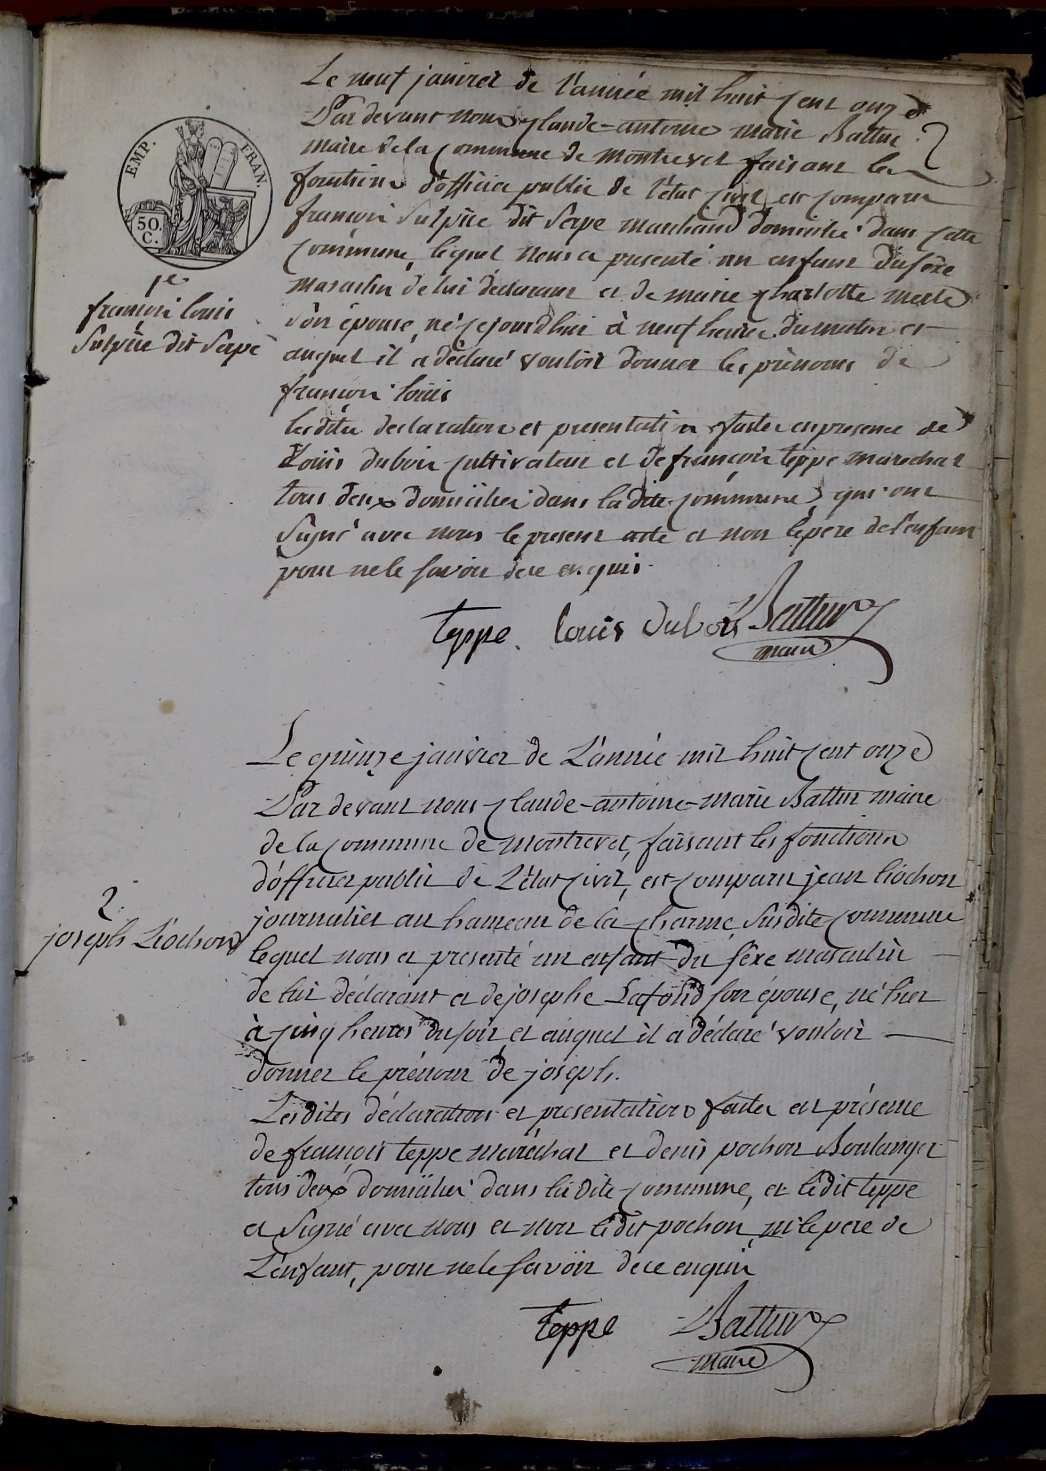 Le neuf janvier de l'année mil huit cent onze
Par devant nous Claude-antoine marie Battur
maire de la commune de montrevel faisant les
fonctions d'officier public de l'état civil est comparu
françois Sulpice dit Serpe marchand domicilié dans cette
commune, lequel nous a presenté un enfant du sexe
masculin de lui déclarant et de marie charlotte merle
son épouse, né cejourdhui à neuf heures du matin et
auquel il a déclaré vouloir donner les prénoms de
françois louis
lesdites declaration et presentation faites en presence de
Louis dubois cultivateur et de françois teppe marechal
tous deux domiciliés dans la dite commune, qui ont
signé avec nous le present acte et non le pere de l'enfant
pour ne le savoir de ce enquis.
teppe Louis Dubois Battur
maire
EMP. FRAN.
50.
C.
1er
françois louis
Sulpice dit Serpe
Le quinze janvier de L'année mil huit cent onze
Par devant nous claude-antoine-marie Battur maire
de la commune de montrevel, faisant les fonctions
d'officier public de L'état civil, est comparu jean Liochon
journalier au hameau de la charme susdite commune
lequel nous a presenté un enfant du sexe masculin
de lui déclarant et de josephe Lafond son épouse, né hier
à cinq heures du soir, et auquel il a déclaré vouloir
donner le prénom de joseph.
Lesdites déclaration et presentation faites en présence
de françois teppe maréchal et denis pochon Boulanger
tous deux domiciliés dans la dite commune, et ledit teppe
a signé avec nous et non ledit pochon, ni le pere de
L'enfant, pour ne le savoir de ce enquis
teppe Battur
maire
2.
joseph Liochon